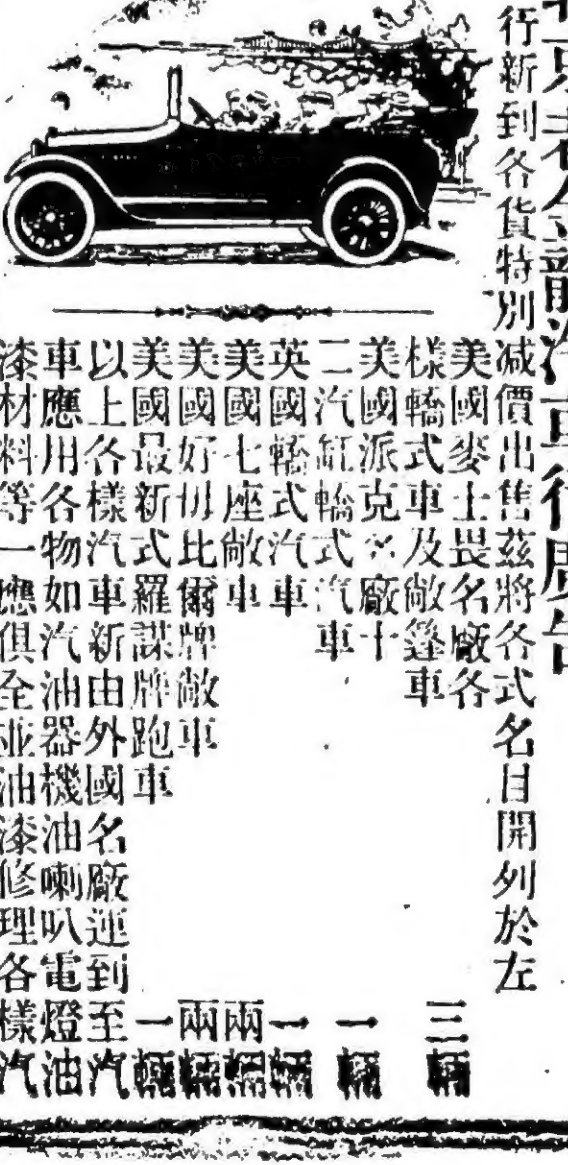 老金龍汽車行廣告
行新到各貨特別減價出售茲將各式名目開列於左
美國麥士畏名廠各
樣轎式車及敞篷車 三輛
美國派克名廠十
二汽缸轎式汽車 一輛
英國轎式汽車 一輛
美國七座敞車 兩輛
美國好比爾牌敞車 兩輛
美國最新式羅謀牌跑車 一輛
以上各樣汽車新由外國名廠運到至汽
車應用各物如汽油器機油喇叭電燈油
漆材料等一應俱全並油漆修理各樣汽